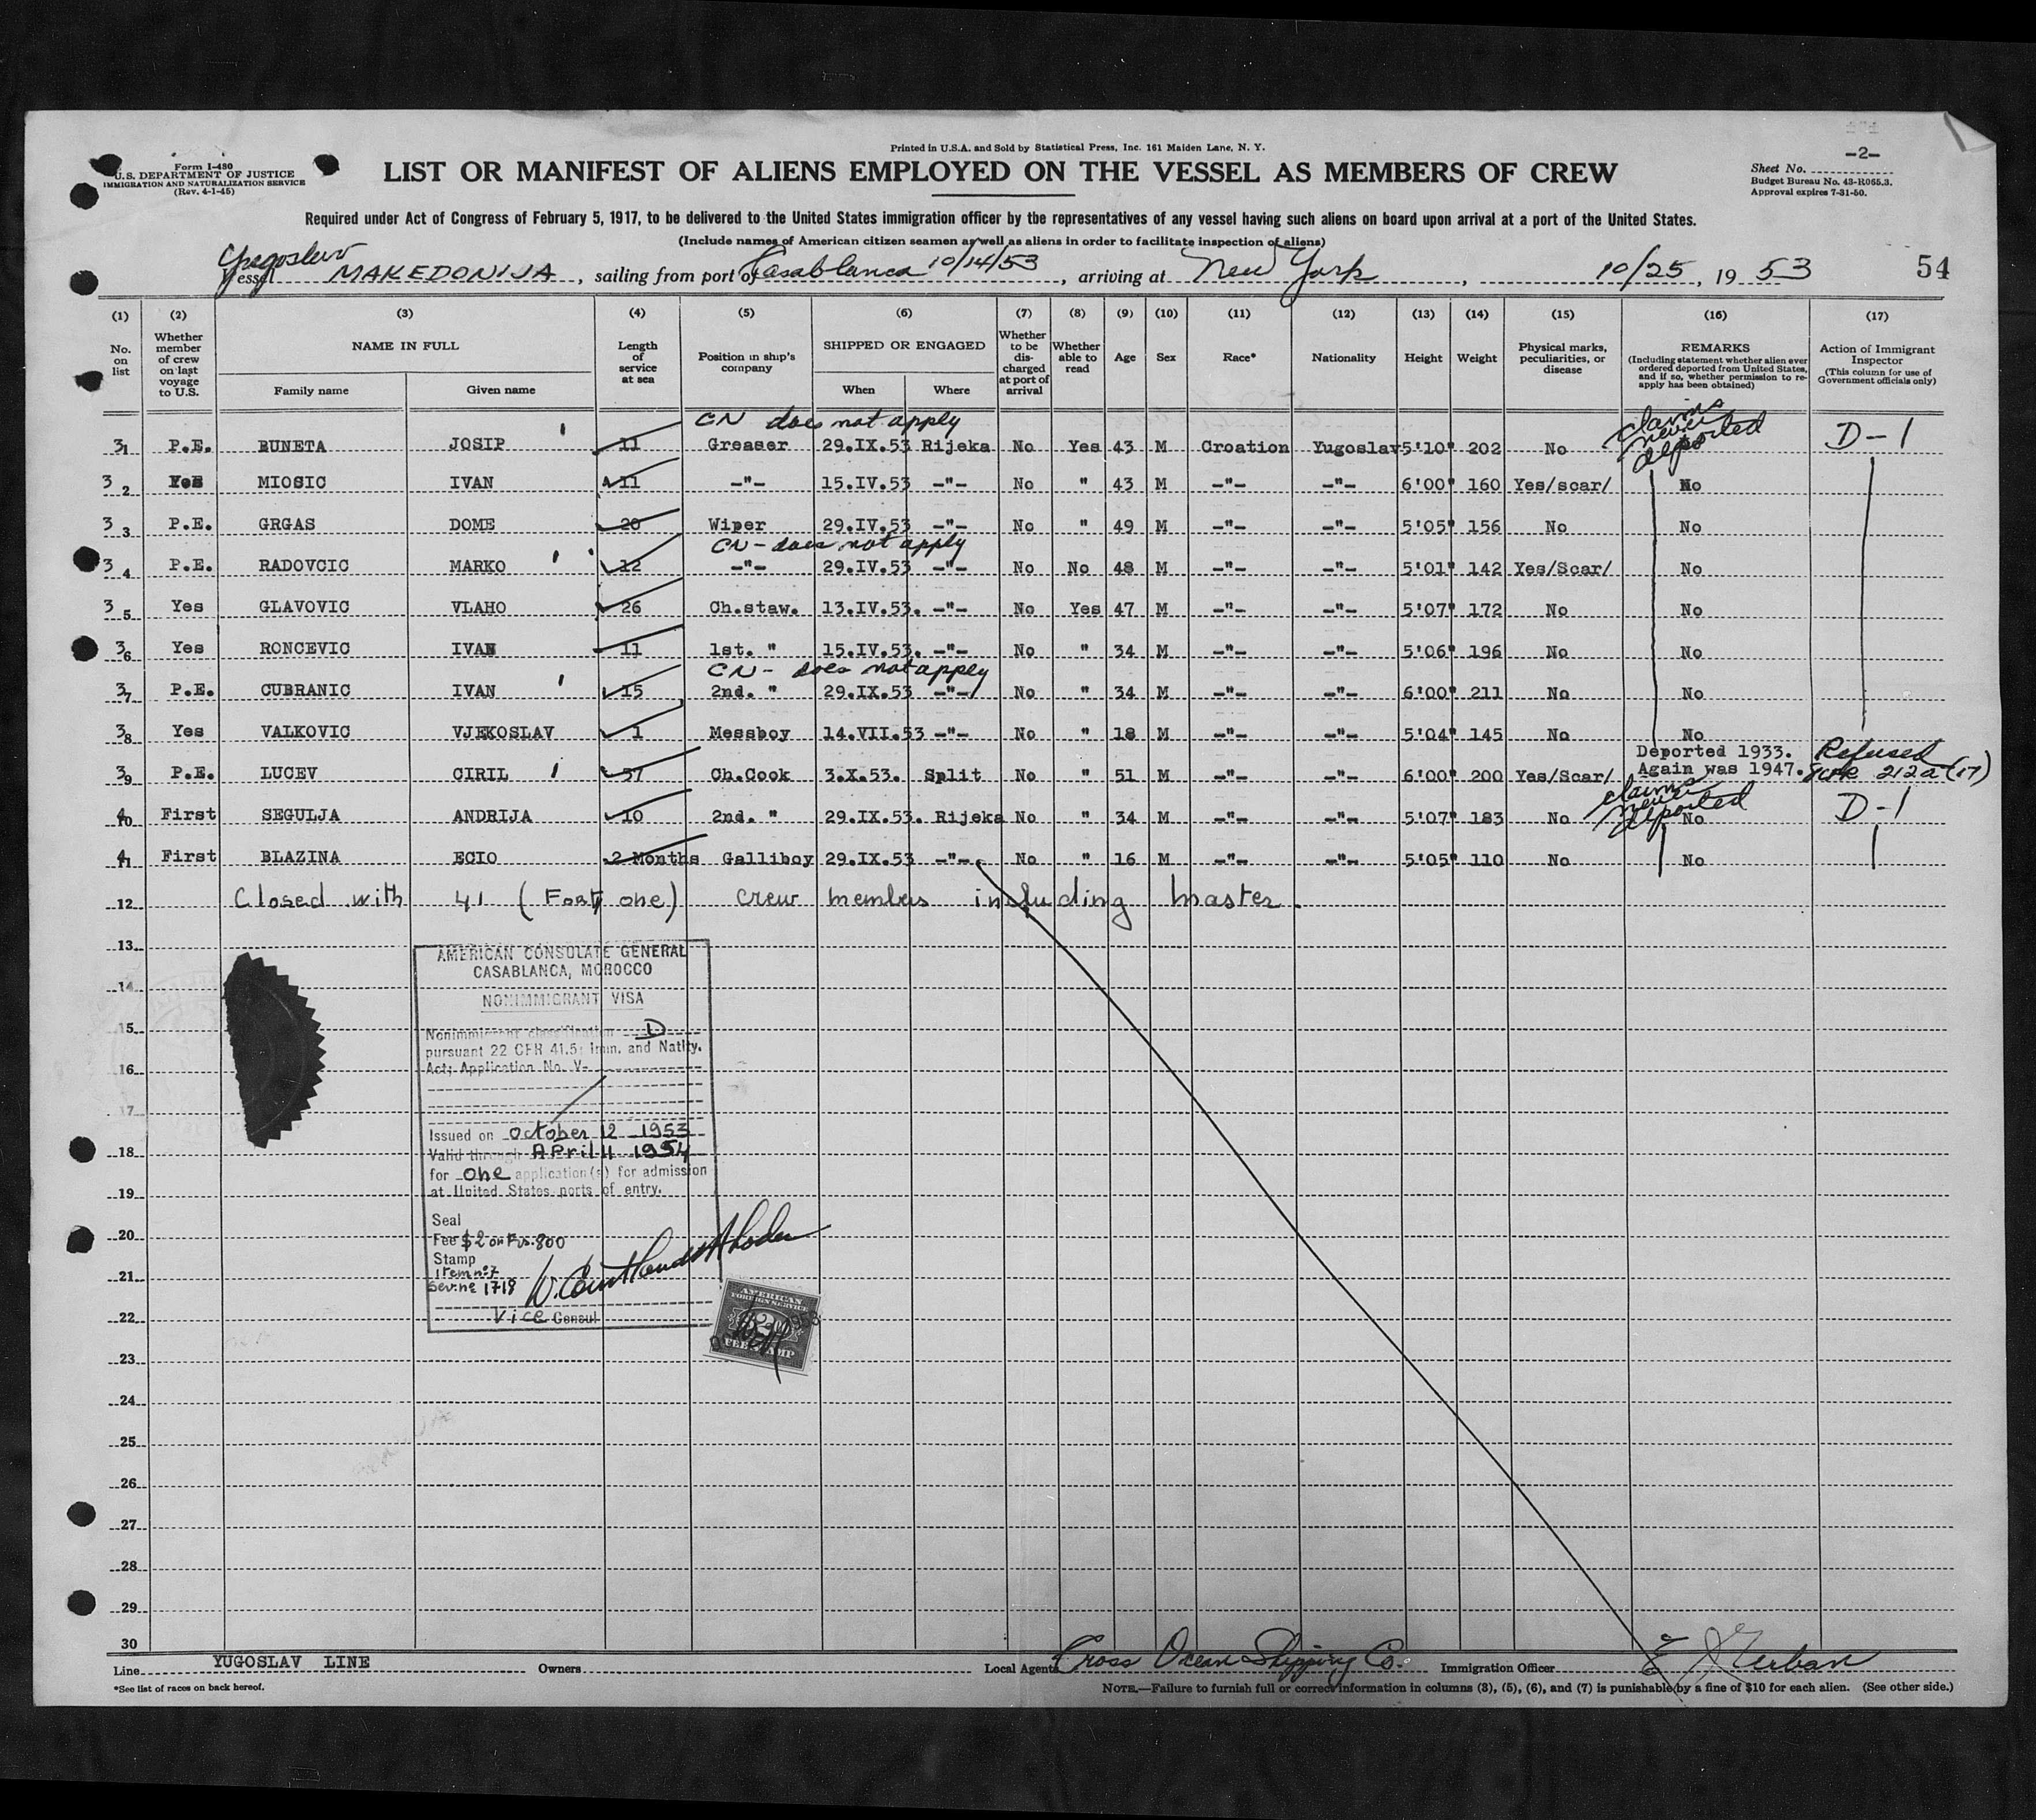 Form I-480
U.S. DEPARTMENT OF JUSTICE
IMMIGRATION AND NATURALIZATION SERVICE
(Rev. 4-1-45)
Printed in U.S.A. and Sold by Statistical Press, Inc. 161 Maiden Lane, N. Y.
LIST OR MANIFEST OF ALIENS EMPLOYED ON THE VESSEL AS MEMBERS OF CREW
-2-
Sheet No.
Budget Bureau No. 43-R065.3.
Approval expires 7-31-50.
Required under Act of Congress of February 5, 1917, to be delivered to the United States immigration officer by the representatives of any vessel having such aliens on board upon arrival at a port of the United States.
(Include names of American citizen seamen as well as aliens in order to facilitate inspection of aliens)
Yugoslav
Vessel MAKEDONIJA, sailing from port of Casablanca 10/14/53, arriving at New York, 10/25, 19 53 54
(1) (2) (3) (4) (5) (6) (7) (8) (9) (10) (11) (12) (13) (14) (15) (16) (17)
No. on list
Whether member of crew on last voyage to U.S.
NAME IN FULL
Family name Given name
Length of service at sea
Position in ship's company
SHIPPED OR ENGAGED
When Where
Whether to be discharged at port of arrival
Whether able to read
Age
Sex
Race*
Nationality
Height
Weight
Physical marks, peculiarities, or disease
REMARKS
(Including statement whether alien ever ordered deported from United States, and if so, whether permission to reapply has been obtained)
Action of Immigrant Inspector
(This column for use of Government officials only)
CN does not apply
31 P.E. BUNETA JOSIP 11 Greaser 29.IX.53 Rijeka No Yes 43 M Croation Yugoslav 5'10" 202 No claims never deported D-1
32 Yes MIOSIC IVAN 11 -"- 15.IV.53 -"- No " 43 M -"- -"- 6'00" 160 Yes/scar/ No
33 P.E. GRGAS DOME 20 Wiper 29.IV.53 -"- No " 49 M -"- -"- 5'05" 156 No No
CN - does not apply
34 P.E. RADOVCIC MARKO 12 -"- 29.IV.53 -"- No No 48 M -"- -"- 5'01" 142 Yes/Scar/ No
35 Yes GLAVOVIC VLAHO 26 Ch.staw. 13.IV.53. -"- No Yes 47 M -"- -"- 5'07" 172 No No
36 Yes RONCEVIC IVAN 11 1st. " 15.IV.53. -"- No " 34 M -"- -"- 5'06" 196 No No
CN - does not apply
37 P.E. CUBRANIC IVAN 15 2nd. " 29.IX.53 -"- No " 34 M -"- -"- 6'00" 211 No No
38 Yes VALKOVIC VJEKOSLAV 1 Messboy 14.VII.53 -"- No " 18 M -"- -"- 5'04" 145 No No
39 P.E. LUCEV CIRIL 37 Ch.Cook 3.X.53. Split No " 51 M -"- -"- 6'00" 200 Yes/Scar/ Deported 1933. Again was 1947. Refused 212a(17)
40 First SEGULJA ANDRIJA 10 2nd. " 29.IX.53. Rijeka No " 34 M -"- -"- 5'07" 183 No claims never deported No D-1
41 First BLAZINA ECIO 2 Months Galliboy 29.IX.53 -"- No " 16 M -"- -"- 5'05" 110 No No
12 Closed with 41 (Forty one) crew members including master.
13
14
15
16
17
18
19
20
21
22
23
24
25
26
27
28
29
30
AMERICAN CONSULATE GENERAL
CASABLANCA, MOROCCO
NONIMMIGRANT VISA
Nonimmigrant classification D
pursuant 22 CFR 41.5; Imm. and Natlty.
Act; Application No. V-
Issued on October 12 1953
Valid through April 11 1954
for One application(s) for admission
at United States ports of entry.
Seal
Fee $2 or Frs. 800
Stamp
Item nº 7
Serv. nº 1718
Vice Consul
AMERICAN
FOREIGN SERVICE
$2
FEE STAMP
Line YUGOSLAV LINE Owners Local Agents Cross Ocean Shipping Co. Immigration Officer
*See list of races on back hereof.
NOTE.—Failure to furnish full or correct information in columns (3), (5), (6), and (7) is punishable by a fine of $10 for each alien. (See other side.)